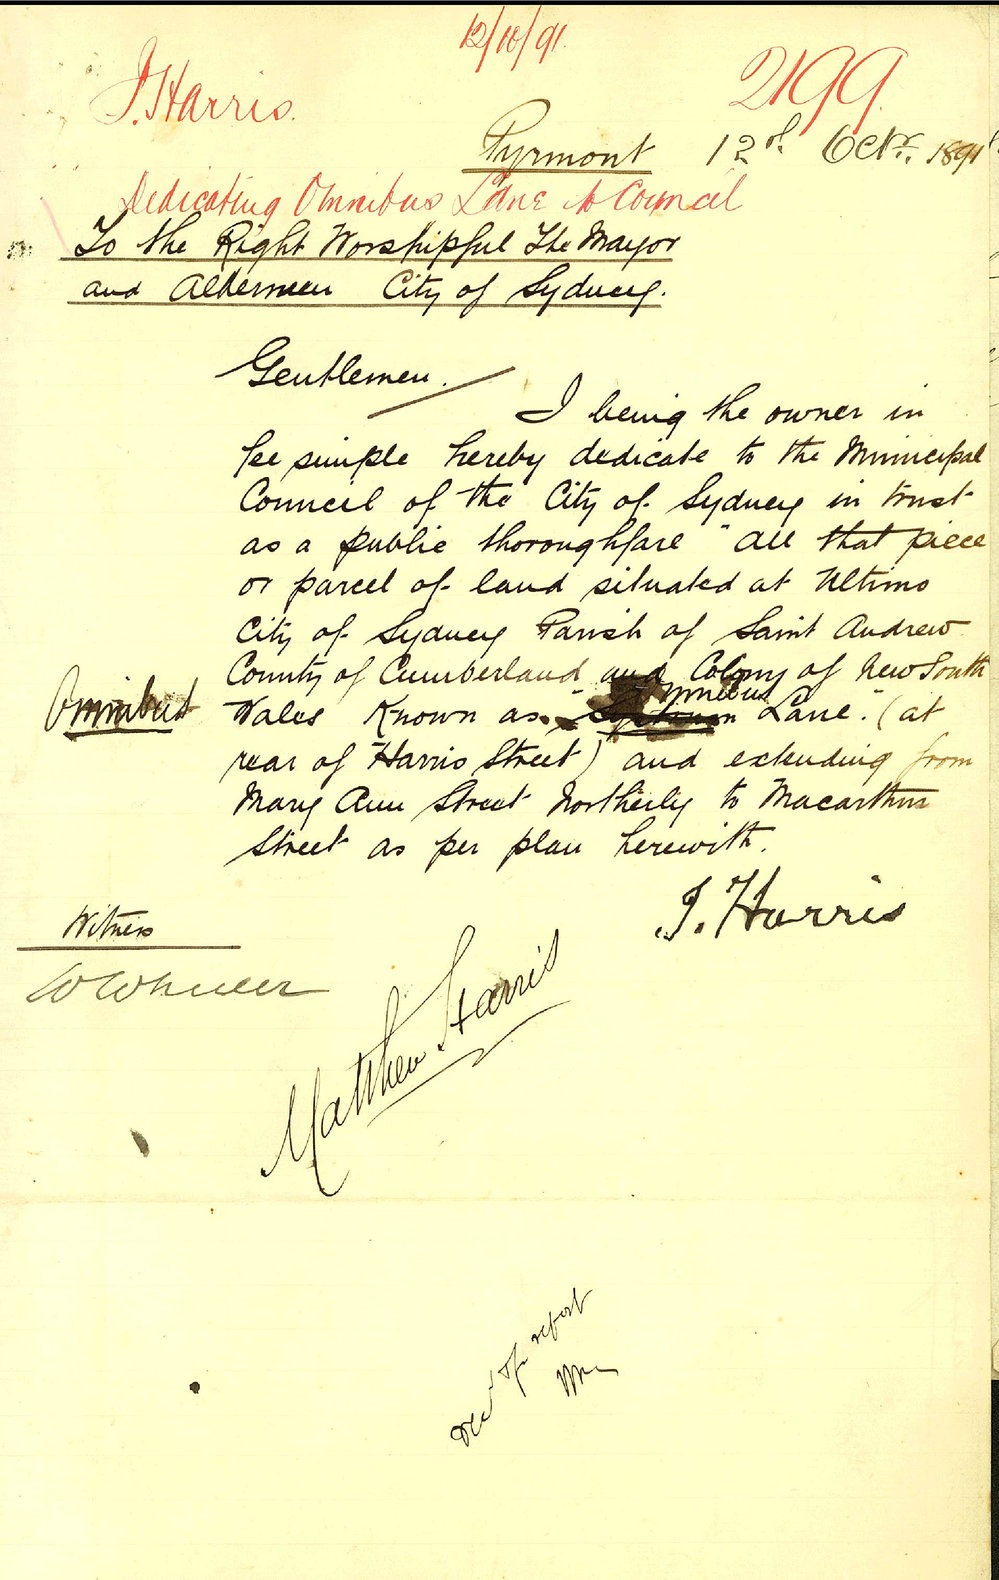 12/10/91.
J. Harris.
2199.
Pyrmont 12th Octr. 1891
Dedicating Omnibus Lane to Council
To the Right Worshipful The Mayor
and Aldermen City of Sydney.
Gentlemen.
I being the owner in
fee simple hereby dedicate to the Municipal
Council of the City of Sydney in trust
as a public thoroughfare "all that piece
or parcel of land situated at Ultimo
City of Sydney Parish of Saint Andrew
County of Cumberland and Colony of New South
Omnibus
Wales Known as "Omnibus Lane". (at
rear of Harris Street) and extending from
Mary Ann Street Northerly to Macarthur
Street as per plan herewith.
J. Harris
Witness
W Wheeler
Matthew Harris
report